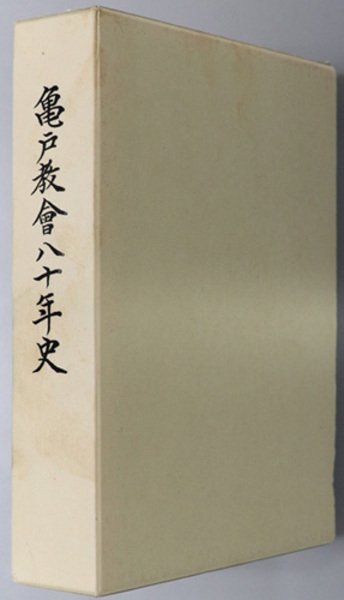 亀戸教會八十年史